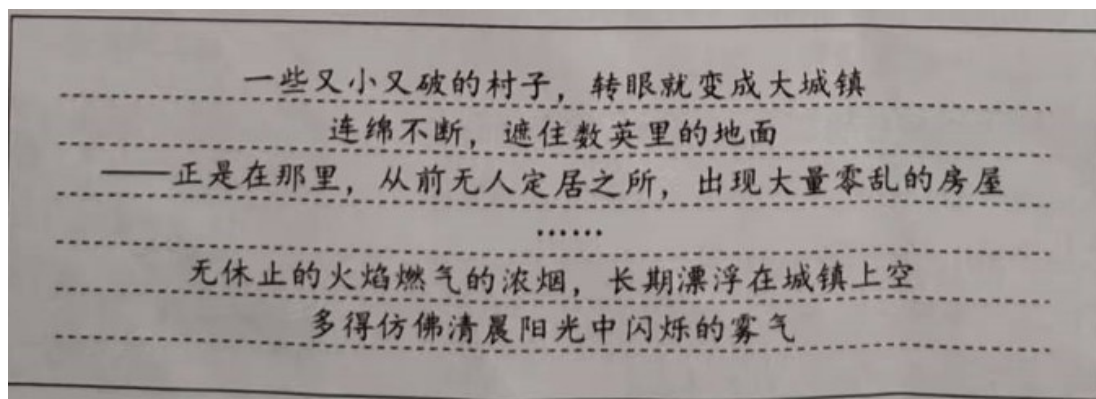 一些又小又破的村子，转眼就变成大城镇
连绵不断，遮住数英里的地面
——正是在那里，从前无人定居之所，出现大量零乱的房屋
……
无休止的火焰燃气的浓烟，长期漂浮在城镇上空
多得仿佛清晨阳光中闪烁的雾气